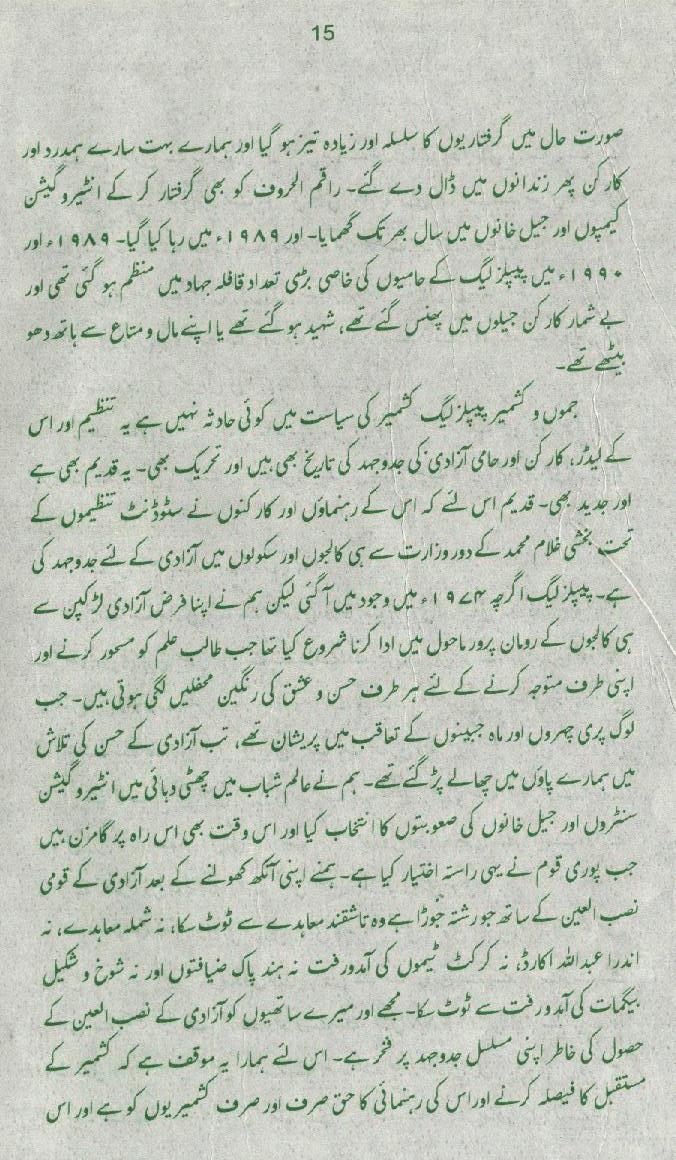 15
صورت حال میں گرفتاریوں کا سلسلہ اور زیادہ تیز ہو گیا اور ہمارے بہت سارے ہمدرد اور
کارکن پھر زندانوں میں ڈال دے گئے۔ راقم الحروف کو بھی گرفتار کر کے انٹیروگیشن
کیمپوں اور جیل خانوں میں سال بھر تک گھمایا۔ اور ۱۹۸۹ء میں رہا کیا گیا۔ ۱۹۸۹ء اور
۱۹۹۰ء میں پیپلز لیگ کے حامیوں کی خاصی بڑی تعداد قافلہ جہاد میں منظم ہو گئی تھی اور
بے شمار کارکن جیلوں میں پھنس گئے تھے، شہید ہو گئے تھے یا اپنے مال و متاع سے ہاتھ دھو
بیٹھے تھے۔
جموں و کشمیر پیپلز لیگ کشمیر کی سیاست میں کوئی حادثہ نہیں ہے یہ تنظیم اور اس
کے لیڈر، کارکن اور حامی آزادی کی جدوجہد کی تاریخ بھی ہیں اور تحریک بھی۔ یہ قدیم بھی ہے
اور جدید بھی۔ قدیم اس لئے کہ اس کے رہنماؤں اور کارکنوں نے سٹوڈنٹ تنظیموں کے
تحت بخشی غلام محمد کے دور وزارت سے ہی کالجوں اور سکولوں میں آزادی کے لئے جدوجہد کی
ہے۔ پیپلز لیگ اگرچہ ۱۹۷۴ء میں وجود میں آگئی لیکن ہم نے اپنا فرض آزادی لڑکپن سے
ہی کالجوں کے رومان پرور ماحول میں ادا کرنا شروع کیا تھا جب طالب علم کو مسحور کرنے اور
اپنی طرف متوجہ کرنے کے لئے ہر طرف حسن و عشق کی رنگین محفلیں لگی ہوتی ہیں۔ جب
لوگ پری چہروں اور ماہ جبینوں کے تعاقب میں پریشان تھے، تب آزادی کے حسن کی تلاش
میں ہمارے پاؤں میں چھالے پڑ گئے تھے۔ ہم نے عالم شباب میں چھٹی دہائی میں انٹیروگیشن
سنٹروں اور جیل خانوں کی صعوبتوں کا انتخاب کیا اور اس وقت بھی اس راہ پر گامزن ہیں
جب پوری قوم نے یہی راستہ اختیار کیا ہے۔ ہمنے اپنی آنکھ کھولنے کے بعد آزادی کے قومی
نصب العین کے ساتھ جو رشتہ جوڑا ہے وہ تاشقند معاہدے سے ٹوٹ سکا، نہ شملہ معاہدے، نہ
اندرا عبداللہ اکارڈ، نہ کرکٹ ٹیموں کی آمدورفت نہ ہند پاک ضیافتوں اور نہ شوخ و شکیل
بیگمات کی آمد و رفت سے ٹوٹ سکا۔ مجھے اور میرے ساتھیوں کو آزادی کے نصب العین کے
حصول کی خاطر اپنی مسلسل جدوجہد پر فخر ہے۔ اس لئے ہمارا یہ موقف ہے کہ کشمیر کے
مستقبل کا فیصلہ کرنے اور اس کی رہنمائی کا حق صرف اور صرف کشمیریوں کو ہے اور اس